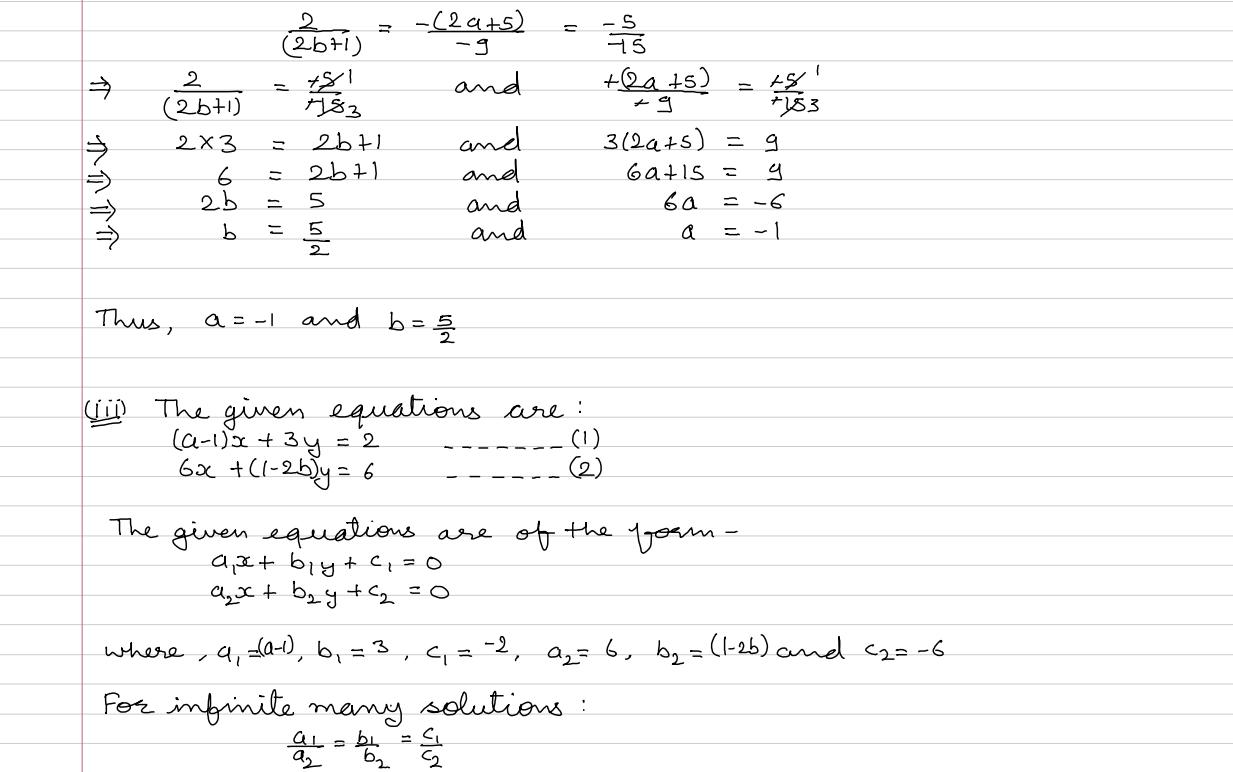 2/(2b+1) = -(2a+5)/-9 = -5/-15
⇒ 2/(2b+1) = +5 1/+15 3 and +(2a+5)/+9 = +5 1/+15 3
⇒ 2×3 = 2b+1 and 3(2a+5) = 9
⇒ 6 = 2b+1 and 6a+15 = 9
⇒ 2b = 5 and 6a = -6
⇒ b = 5/2 and a = -1
Thus, a = -1 and b = 5/2
(iii) The given equations are :
(a-1)x + 3y = 2 ------- (1)
6x + (1-2b)y = 6 ------ (2)
The given equations are of the form -
a₁x + b₁y + c₁ = 0
a₂x + b₂y + c₂ = 0
where, a₁=(a-1), b₁ = 3, c₁ = -2, a₂= 6, b₂ = (1-2b) and c₂= -6
For infinite many solutions :
a₁/a₂ = b₁/b₂ = c₁/c₂